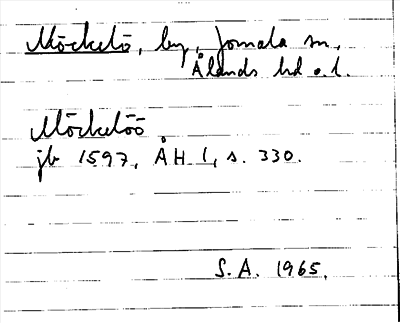 Möckelö, by, Jomala sn,
Ålands hd o. l.
Möckelöö
jb 1597, ÅH 1, s. 330.
S.A. 1965.